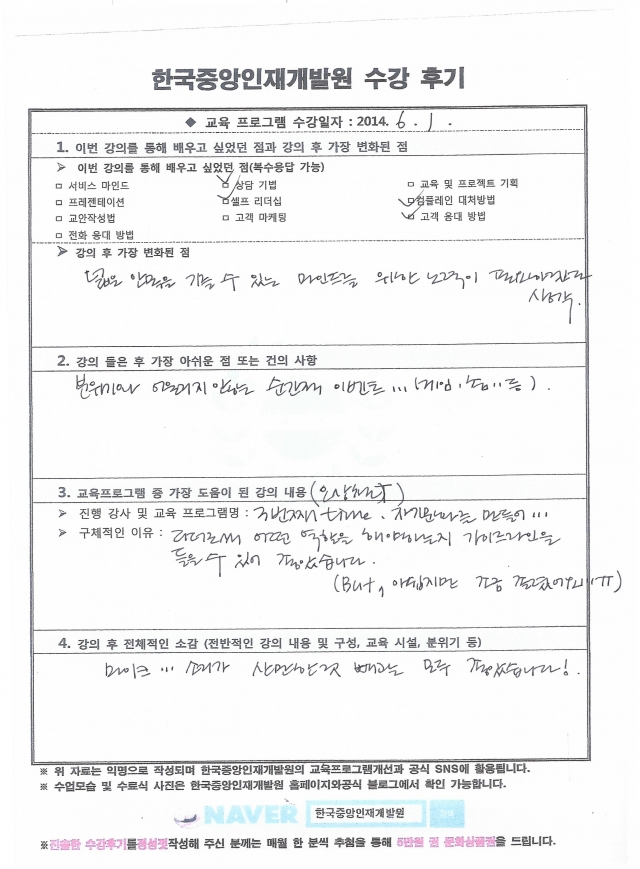 한국중앙인재개발원 수강 후기
◆ 교육 프로그램 수강일자 : 2014. 6. 1.
1. 이번 강의를 통해 배우고 싶었던 점과 강의 후 가장 변화된 점
➢ 이번 강의를 통해 배우고 싶었던 점(복수응답 가능)
□ 서비스 마인드 □ 상담 기법 □ 교육 및 프로젝트 기획
□ 프레젠테이션 □ 셀프 리더십 □ 컴플레인 대처방법
□ 교안작성법 □ 고객 마케팅 □ 고객 응대 방법
□ 전화 응대 방법
➢ 강의 후 가장 변화된 점
넓은 안목을 기를 수 있는 마인드를 위한 노력이 필요하겠다고
생각.
2. 강의 들은 후 가장 아쉬운 점 또는 건의 사항
분위기와 어울리지 않는 순간적 이벤트 ... (게임, 등).
3. 교육프로그램 중 가장 도움이 된 강의 내용
➢ 진행 강사 및 교육 프로그램명 : 3번째 time. 만들기 ...
➢ 구체적인 이유 : 리더로써 어떤 역할을 해야하는지 가이드라인을
들을 수 있어 좋았습니다.
(But, 아쉽지만 조금 졸렸어요 ㅠㅠ)
4. 강의 후 전체적인 소감 (전반적인 강의 내용 및 구성, 교육 시설, 분위기 등)
마이크 ... 소리가 산만한것 빼고는 모두 좋았습니다!.
※ 위 자료는 익명으로 작성되며 한국중앙인재개발원의 교육프로그램개선과 공식 SNS에 활용됩니다.
※ 수업모습 및 수료식 사진은 한국중앙인재개발원 홈페이지와공식 블로그에서 확인 가능합니다.
NAVER 한국중앙인재개발원
※진솔한 수강후기를정성껏작성해 주신 분께는 매월 한 분씩 추첨을 통해 5만원 권 문화상품권을 드립니다.